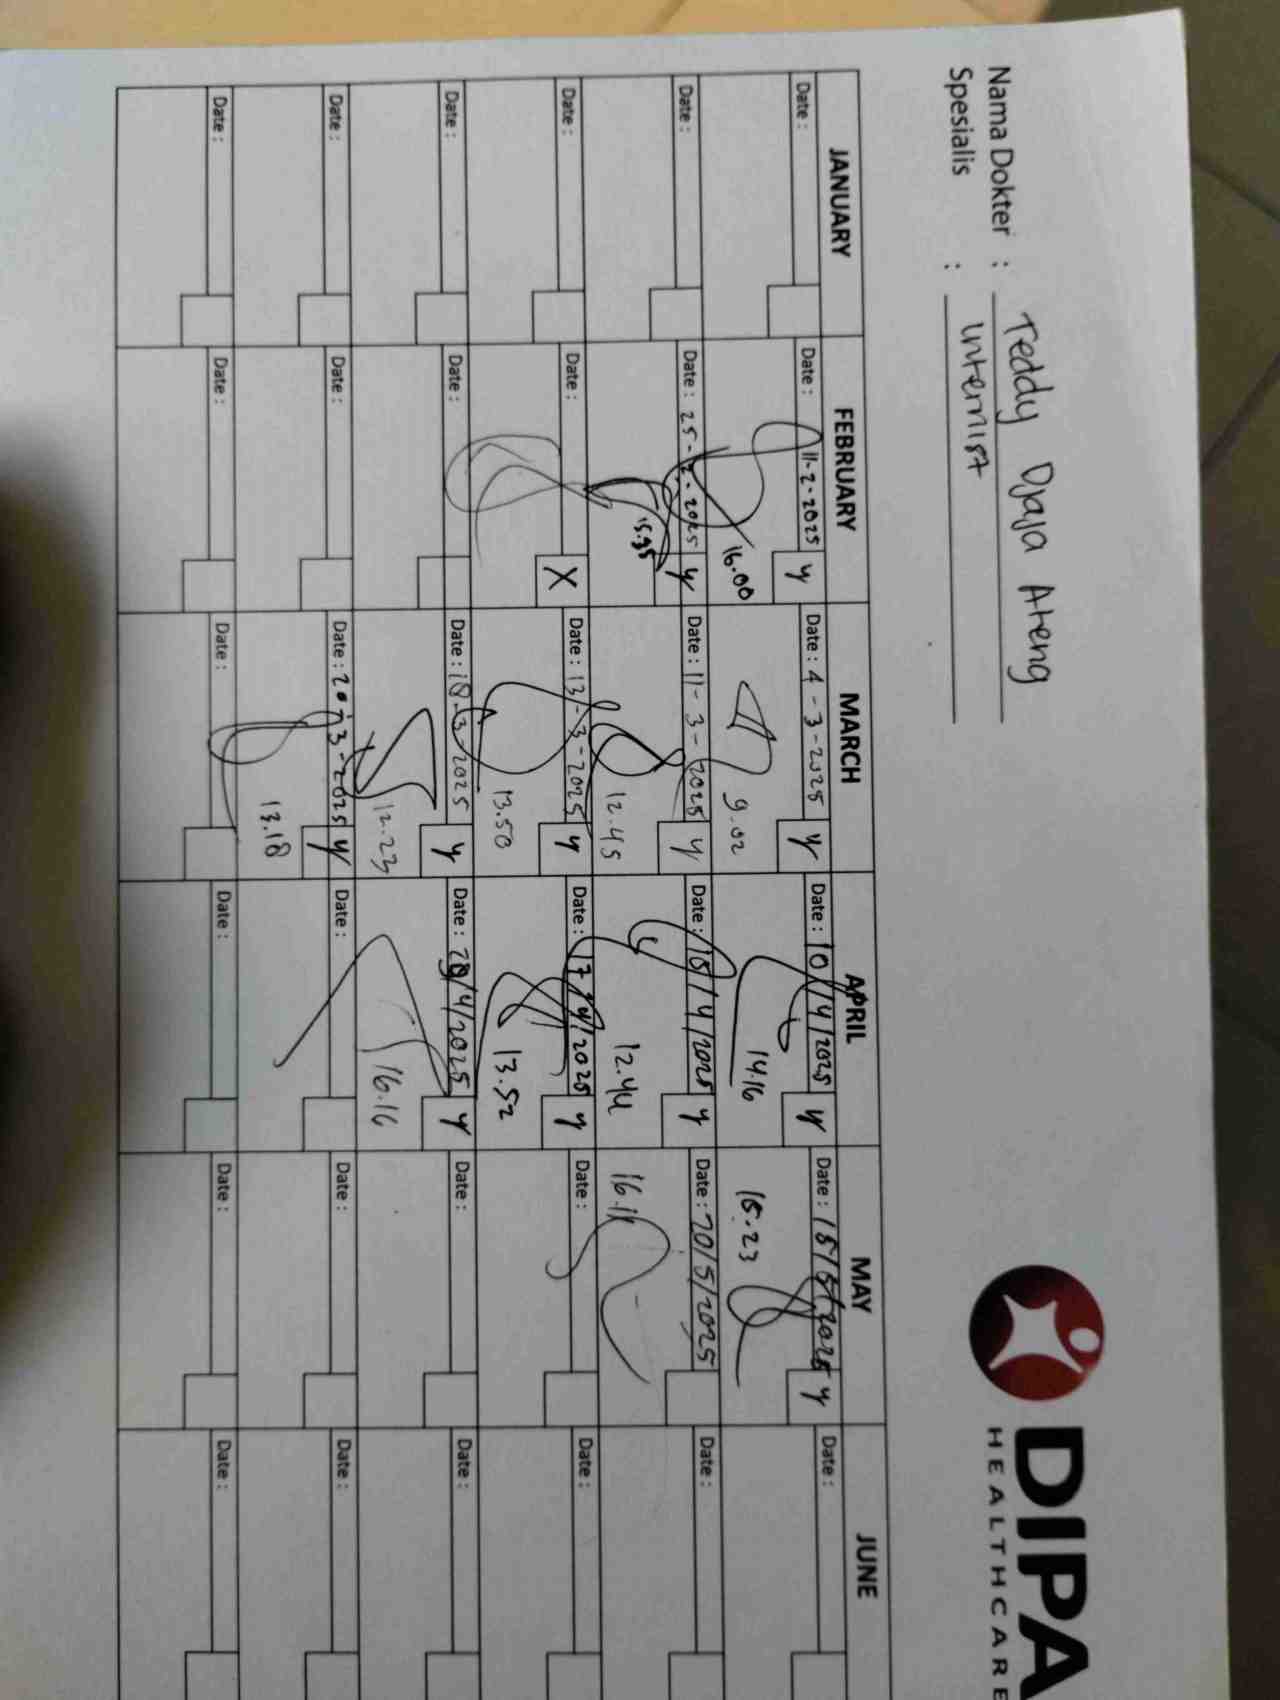 DIPA
HEALTHCARE
Nama Dokter : Teddy Djaja Ateng
Spesialis : Internist
JANUARY FEBRUARY MARCH APRIL MAY JUNE
Date : Date : 11-2-2025 y Date : 4-3-2025 y Date : 10/4/2025 y Date : 15/5/2025 y Date :
16.00 9.02 14.16 15.23
Date : Date : 25-2-2025 y Date : 11-3-2025 y Date : 15/4/2025 y Date : 20/5/2025 Date :
15.35 12.45 12.44 16.11
Date : Date : X Date : 13-3-2025 y Date : 17/4/2025 y Date : Date :
13.50 13.52
Date : Date : Date : 18-3-2025 y Date : /4/2025 y Date : Date :
12.23 16.16
Date : Date : Date : -3-2025 y Date : Date : Date :
13.18
Date : Date : Date : Date : Date : Date :